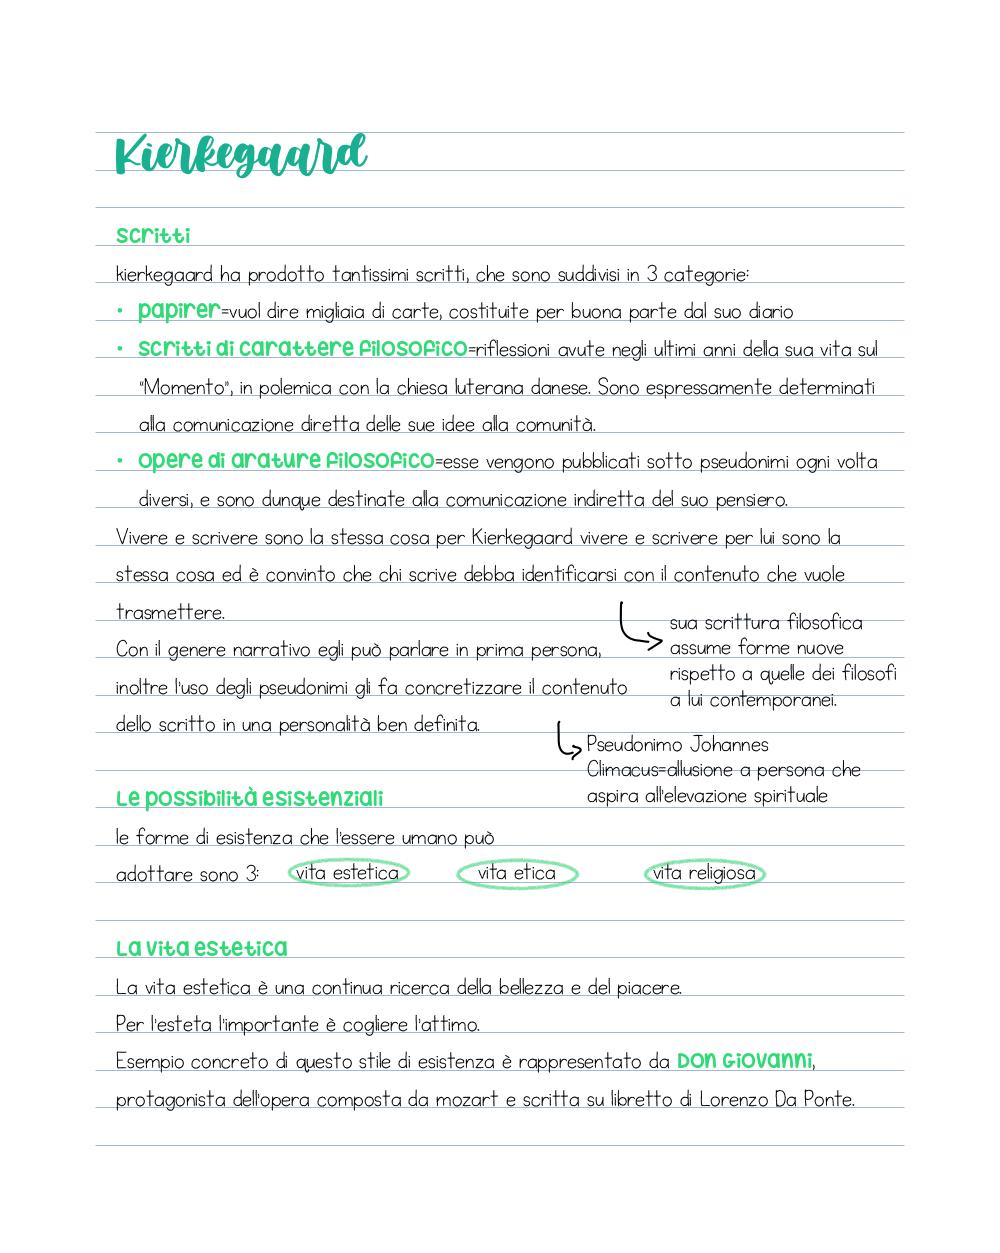 Kierkegaard
scritti
kierkegaard ha prodotto tantissimi scritti, che sono suddivisi in 3 categorie:
• papirer=vuol dire migliaia di carte, costituite per buona parte dal suo diario
• scritti di carattere filosofico=riflessioni avute negli ultimi anni della sua vita sul
"Momento", in polemica con la chiesa luterana danese. Sono espressamente determinati
alla comunicazione diretta delle sue idee alla comunità.
• opere di arature filosofico=esse vengono pubblicati sotto pseudonimi ogni volta
diversi, e sono dunque destinate alla comunicazione indiretta del suo pensiero.
Vivere e scrivere sono la stessa cosa per Kierkegaard vivere e scrivere per lui sono la
stessa cosa ed è convinto che chi scrive debba identificarsi con il contenuto che vuole
trasmettere.
sua scrittura filosofica
assume forme nuove
rispetto a quelle dei filosofi
a lui contemporanei.
Con il genere narrativo egli può parlare in prima persona,
inoltre l'uso degli pseudonimi gli fa concretizzare il contenuto
dello scritto in una personalità ben definita.
Pseudonimo Johannes
Climacus=allusione a persona che
aspira all'elevazione spirituale
Le possibilità esistenziali
le forme di esistenza che l'essere umano può
adottare sono 3: vita estetica vita etica vita religiosa
La vita estetica
La vita estetica è una continua ricerca della bellezza e del piacere.
Per l'esteta l'importante è cogliere l'attimo.
Esempio concreto di questo stile di esistenza è rappresentato da Don Giovanni,
protagonista dell'opera composta da mozart e scritta su libretto di Lorenzo Da Ponte.